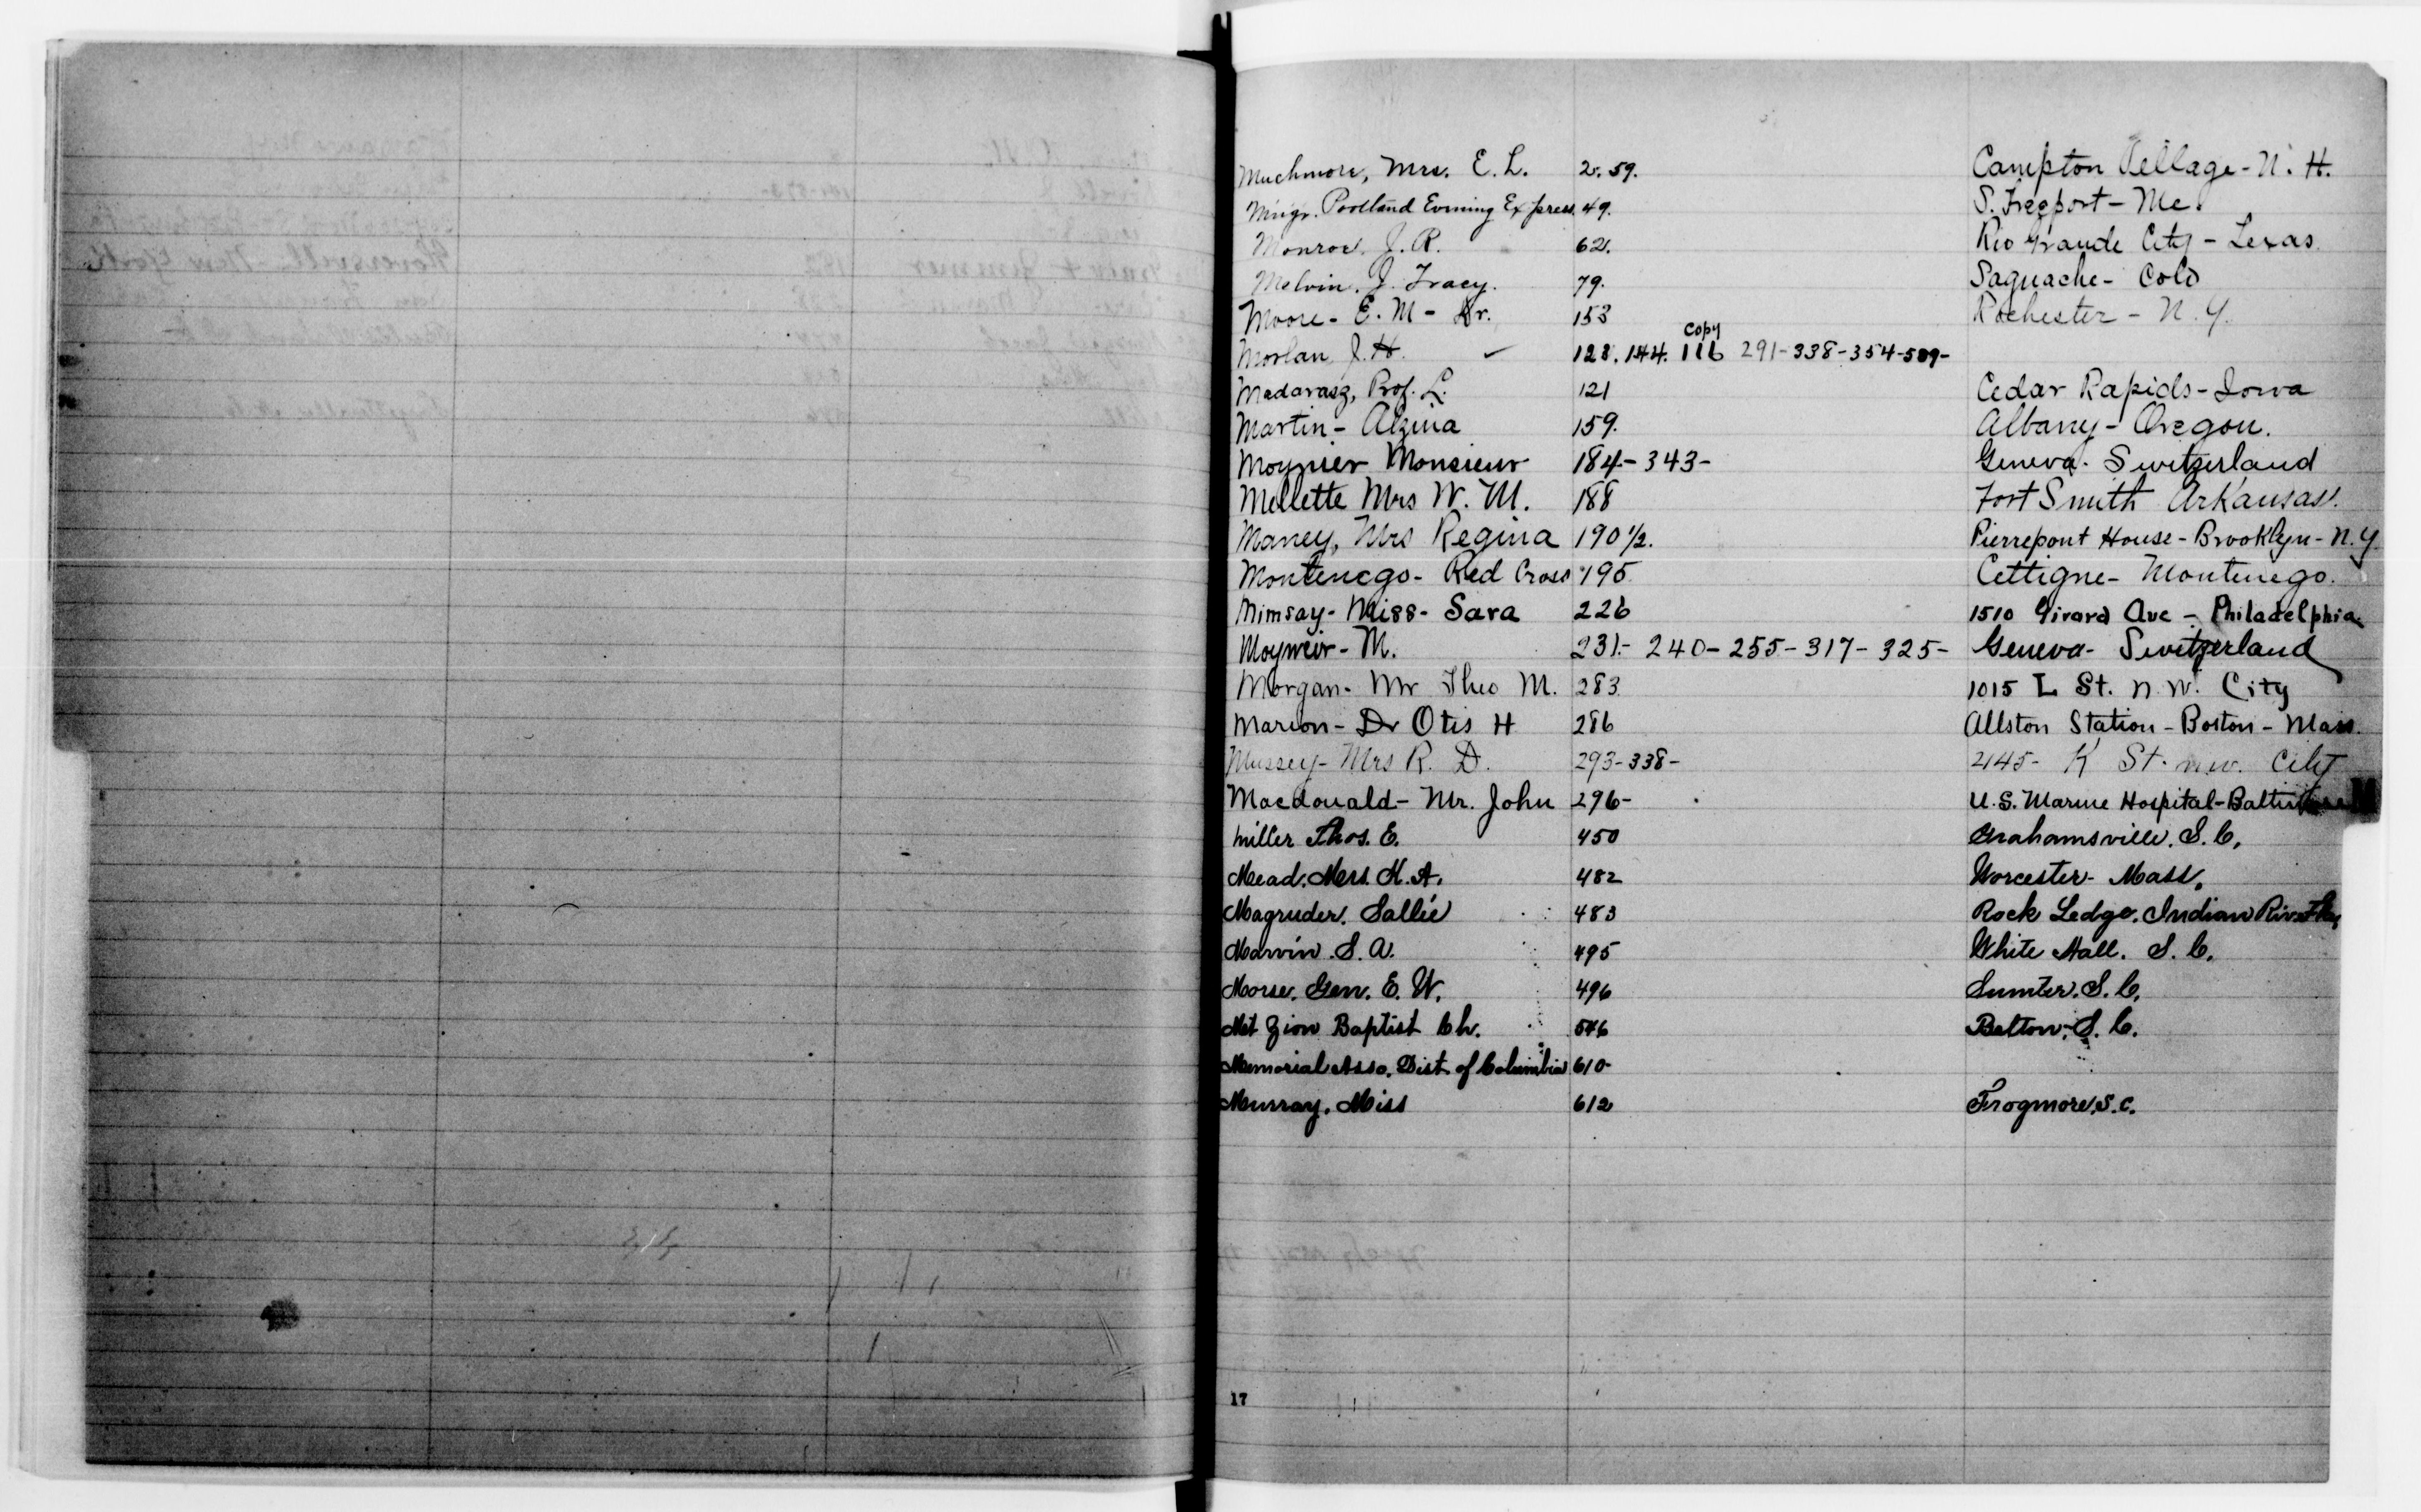 Muchmore, Mrs. E. L. 2. 59. Campton Village - N. H.
Mngr. Portland Evening Express. 49. S. Freeport - Me.
Monroe, J. R. 62. Rio Grande City - Texas.
Melvin, J. Tracy. 79. Saguache - Colo
Moore - E. M - Dr. 153 Rochester - N. Y.
copy
Morlan, J. H. ✓ 128. 144. 116 291-338-354-589-
Madarasz, Prof. L. 121 Cedar Rapids - Iowa
Martin - Alzina 159. Albany - Oregon.
Moynier Monsieur 184 - 343 - Geneva. Switzerland
Mellette Mrs W. M. 188 Fort Smith Arkansas.
Maney, Mrs Regina 190 1/2. Pierrepont House - Brooklyn - N. Y.
Montenego - Red Cross 195 Cettigne - Montenego.
Mimsay - Miss - Sara 226 1510 Girard Ave - Philadelphia
Moyneir - M. 231 - 240 - 255 - 317 - 325 - Geneva - Switzerland
Morgan - Mr Theo M. 283 1015 L St. N. W. City
Marion - Dr Otis H 286 Allston Station - Boston - Mass.
Mussey - Mrs R. D. 293 - 338 - 2145 - K St. n.w. City
Macdonald - Mr. John 296 - U. S. Marine Hospital - Baltimore
Miller Thos. E. 450 Grahamsville, S. C.
Mead, Mrs. H. A. 482 Worcester - Mass.
Magruder, Sallie 483 Rock Ledge, Indian Riv. Fla
Marvin. S. A. 495 White Hall. S. C.
Morse. Gen. E. W. 496 Sumter. S. C.
Mt Zion Baptist Ch. 546 Belton. S. C.
Memorial Asso. Dist. of Columbia 610 -
Murray, Miss 612 Frogmore, S. C.
M
17